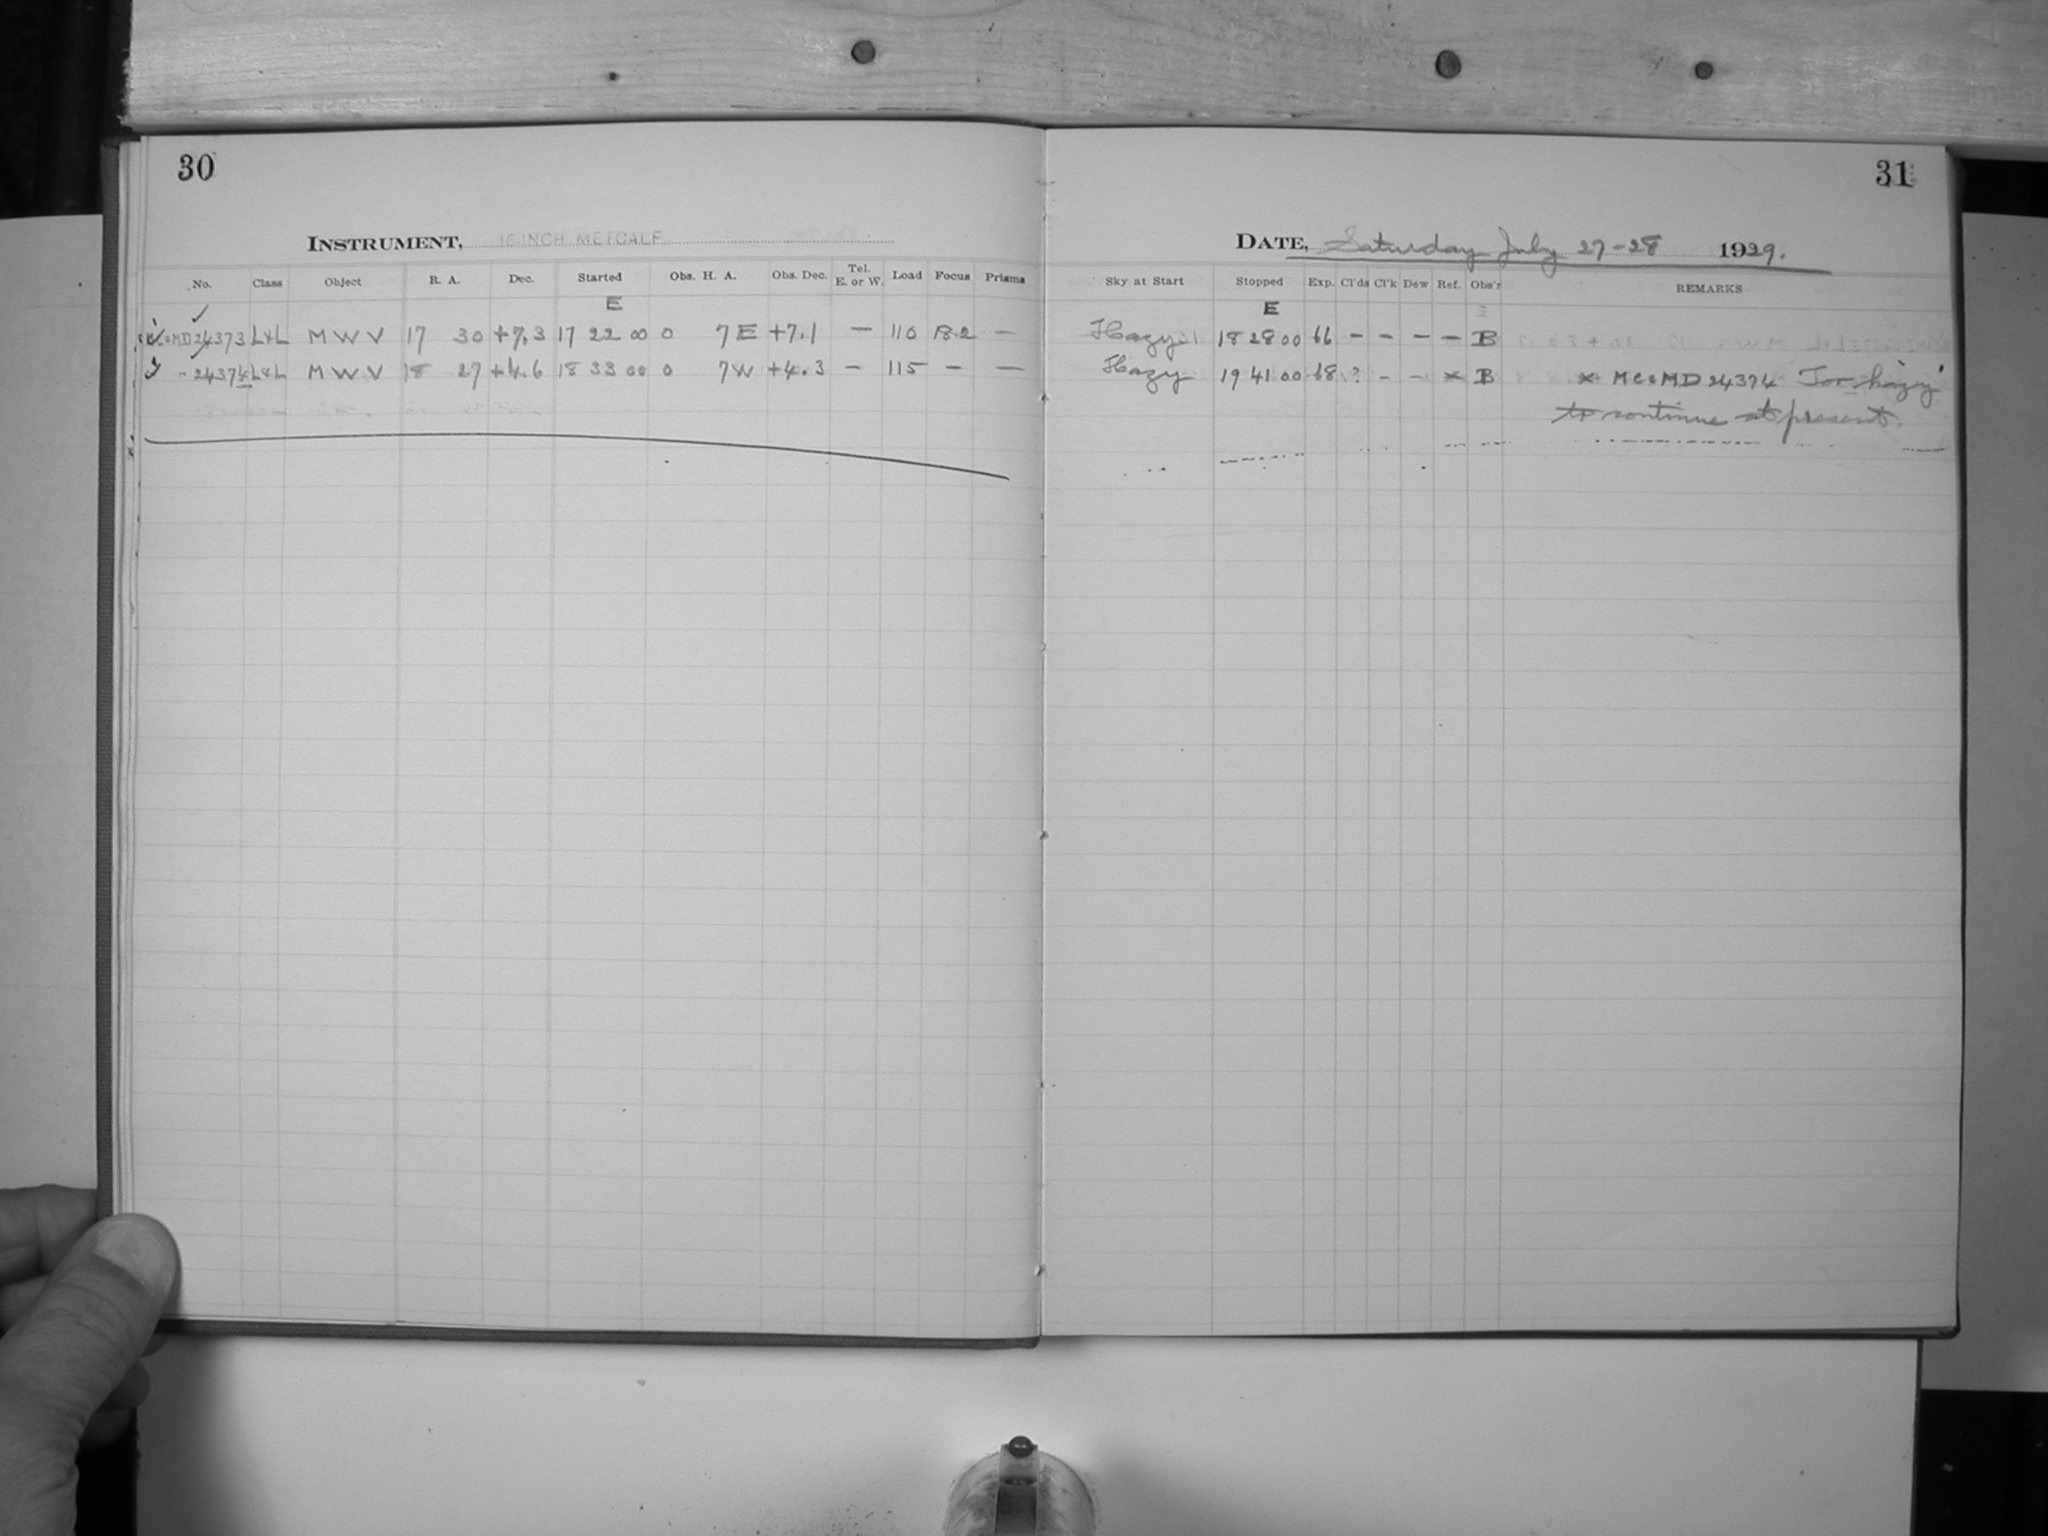 30
INSTRUMENT, 16-INCH METCALF
No. Class Object R. A. Dec. Started Obs. H. A. Obs. Dec. Tel. E. or W. Load Focus Prisms
E
24373 L&L MWV 17 30 +7.3 17 22 00 0 7 E +7.1 — 110 18.2 —
" 24374 L&L MWV 18 27 +4.6 18 33 00 0 7 W +4.3 — 115 — —
31
DATE, Saturday July 27-28 1929.
Sky at Start Stopped Exp. Cl'ds Cl'k Dew Ref. Obs'r REMARKS
E
Hazy 18 28 00 66 — — — — B
Hazy 19 41 00 68 ? - - × B × MC&MD 24374 Too hazy
to continue at present.